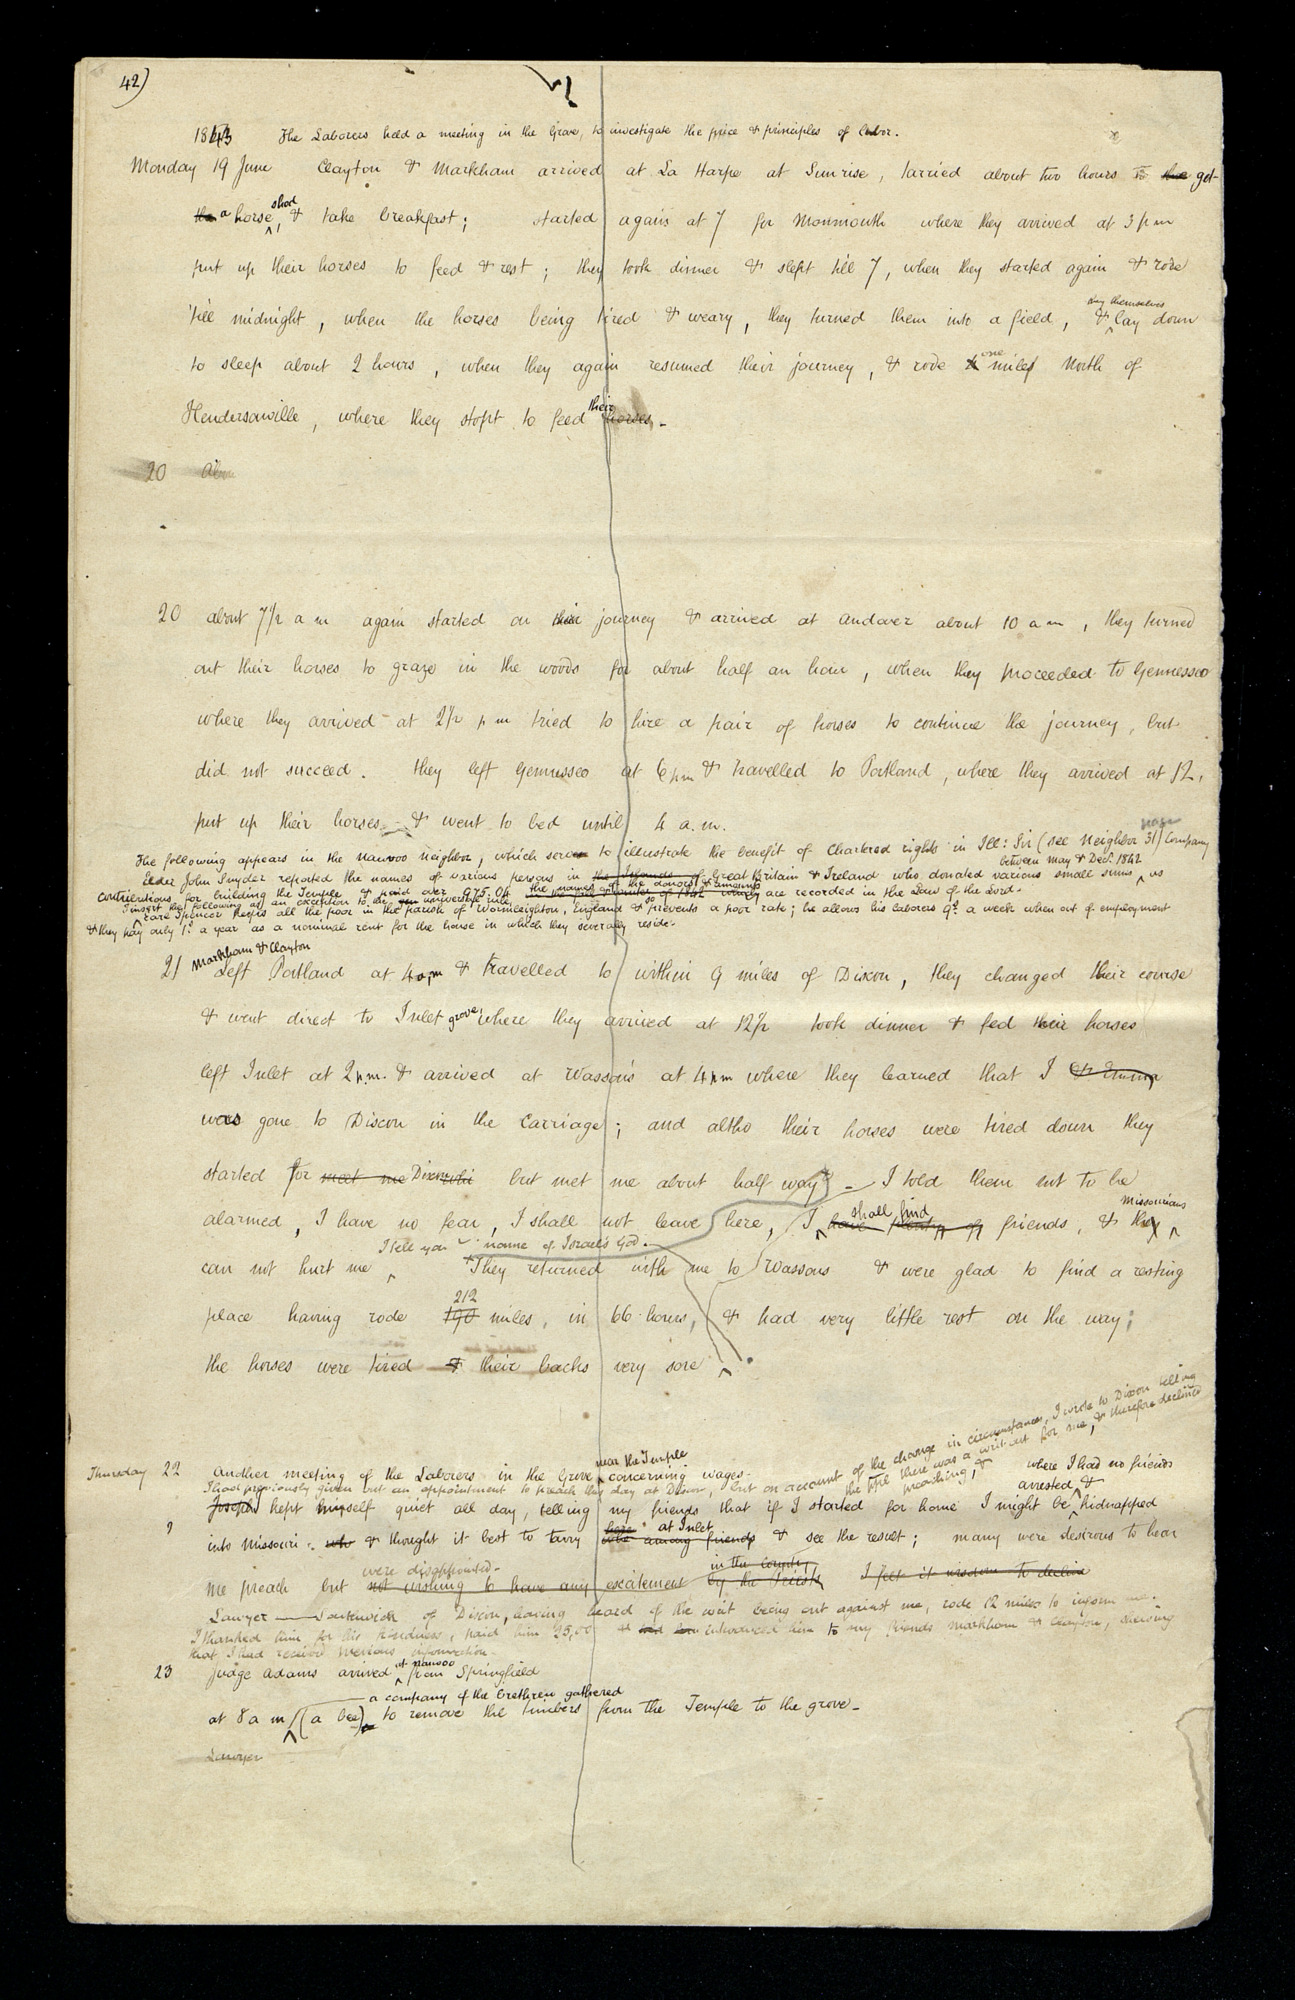 42)
1843 The Laborers held a meeting in the Grove, to investigate the price & principles of labor.
Monday 19 June Clayton & Markham arrived at La Harpe at Sunrise, tarried about two hours to have get
the a horse, shod & take breakfast; started again at 7 for Monmouth where they arrived at 3 p m
put up their horses to feed & rest; they took dinner & slept till 7, when they started again & rode
'till midnight, when the horses being tired & weary, they turned them into a field, & lay themselves lay down
to sleep about 2 hours, when they again resumed their journey, & rode one miles North of
Hendersonville, where they stopt to feed their horses.
20 Abou
20 about 7 1/2 a m again started on their journey & arrived at Andover about 10 a m, they turned
out their horses to graze in the woods for about half an hour, when they proceeded to Gennesseo
where they arrived at 2 1/2 p m tried to hire a pair of horses to continue the journey, but
did not succeed. They left Gennesseo at 6 pm & travelled to Portland, where they arrived at 12,
put up their horses & went to bed until 4 a.m.
The following appears in the Nauvoo Neighbor, which serves to illustrate the benefit of Chartered rights in Ill: Sir (see Neighbor page 31) Company
Elder John Snyder reported the names of various persons in the Islands of Great Britain & Ireland who donated various small sums between May & Dec. 1842 as
contributions for building the Temple & paid over 975.04 the names of the donors & amounts are recorded in the Law of the Lord.
I insert the following as an exception to the universal rule,
Earl Spencer keeps all the poor in the parish of Wormleighton, England & so prevents a poor rate; he allows his laborers 9s. a week when out of employment
& they pay only 1s. a year as a nominal rent for the house in which they severally reside.
21 Markham & Clayton Left Portland at 4 am & travelled to within 9 miles of Dixon, they changed their course
& went direct to Inlet grove where they arrived at 12 1/2 took dinner & fed their horses
left Inlet at 2 p.m. & arrived at Wasson's at 4 pm where they learned that I & Emma
was gone to Dixon in the Carriage; and altho their horses were tired down they
started for meet me Dixon who but met me about half way. I told them not to be
alarmed, I have no fear, I shall not leave here, I have plenty of shall find friends, & they Missourians
can not hurt me I tell you name of Israel's God. They returned with me to Wassons & were glad to find a resting
place having rode 190 212 miles, in 66 hours, & had very little rest on the way;
the horses were tired & their backs very sore.
Thursday 22 Another meeting of the Laborers in the Grove near the Temple concerning wages.
I had previously given out an appointment to preach this day at Dixon, but on account of the change in circumstances, I wrote to Dixon telling
the ppl there was a writ out for me, & therefore declined
preaching, &
Joseph kept himself quiet all day, telling my friends that if I started for home I might be arrested & kidnapped where I had no friends
into Missouri. who & thought it best to tarry here at Inlet who among friends & see the result; many were desirous to hear
me preach but were disappointed. not wishing to have any excitement in the County by the Priests I felt it wisdom to decline
Lawyer Southwick of Dixon, having heard of the writ being out against me, rode 12 miles to inform me.
I thanked him for his kindness, paid him 25,00 & introduced him to my friends Markham & Clayton, shewing
that I had received previous information.
23 Judge Adams arrived at Nauvoo from Springfield
at 8 a m (a bee) a company of the brethren gathered to remove the timbers from the Temple to the grove.
Lawyer